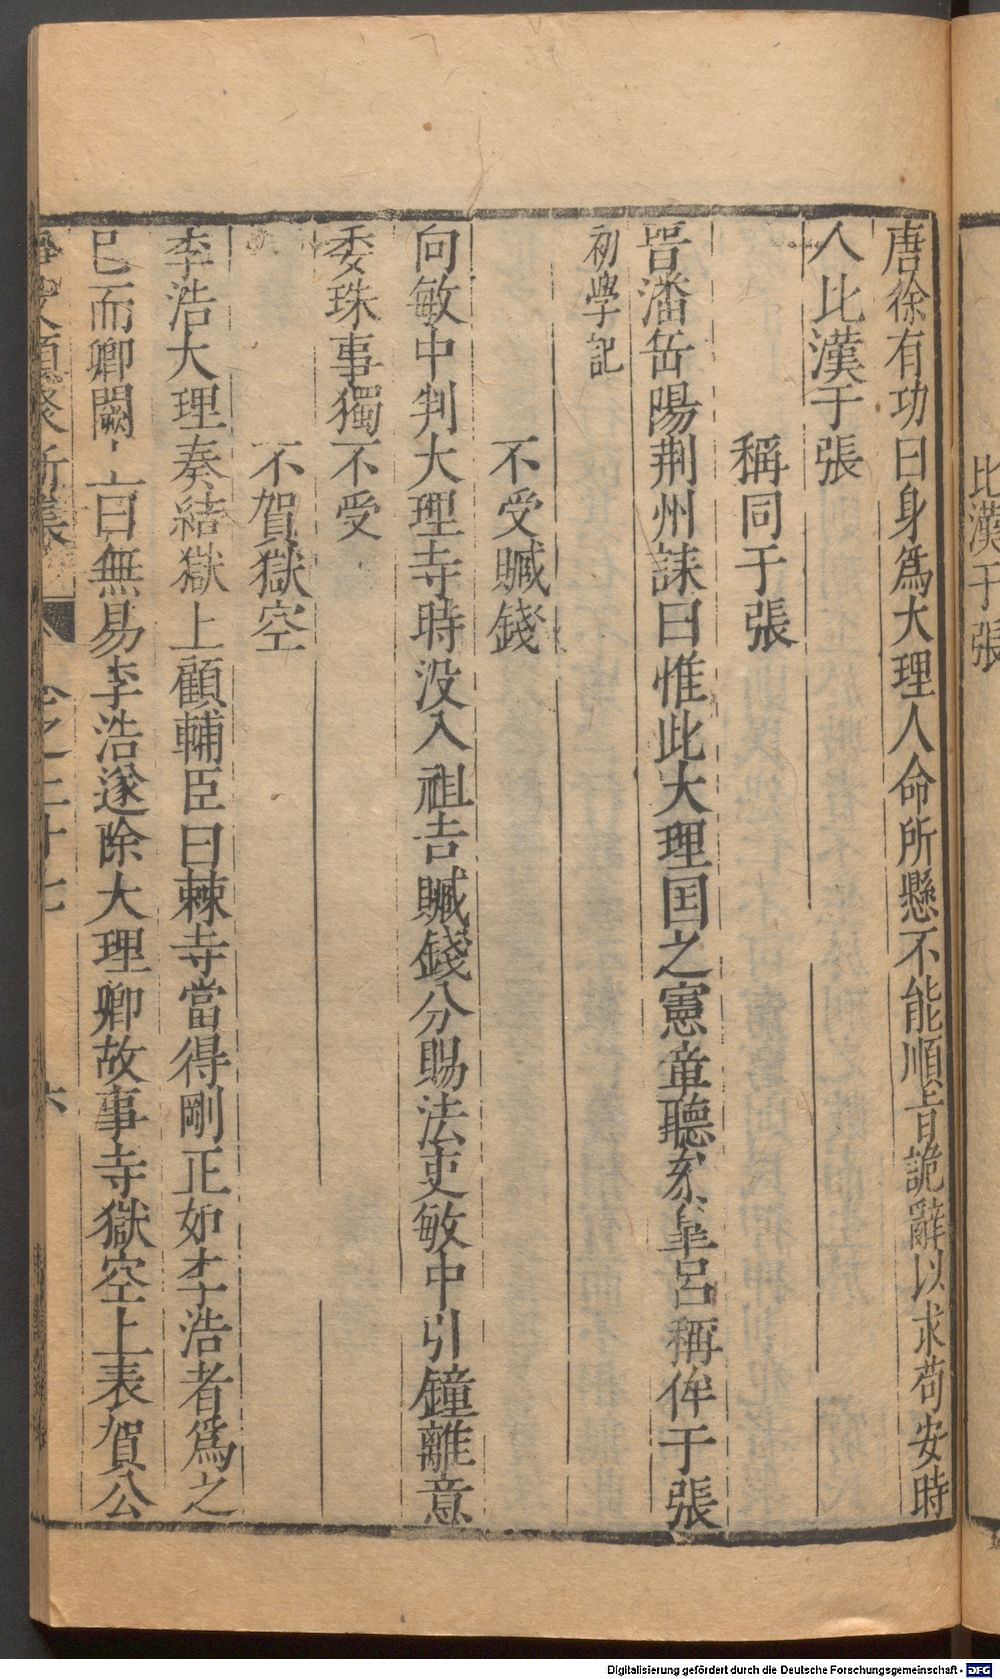 比漢于張
唐徐有功曰身爲大理人命所懸不能順旨詭辭以求苟安時
人比漢于張
稱同于張
晋潘岳陽荆州誄曰惟此大理国之憲章聽參臯呂稱侔于張
初學記
不受贓錢
向敏中判大理寺時没入祖吉贓錢分賜法吏敏中引鐘離意
委珠事獨不受
不賀獄空
李浩大理奏結獄上顧輔臣曰棘寺當得剛正如李浩者爲之
已而卿闕上曰無易李浩遂除大理卿故事寺獄空上表賀公
事文類聚新集
卷之二十七
六
Digitalisierung gefördert durch die Deutsche Forschungsgemeinschaft - DFG